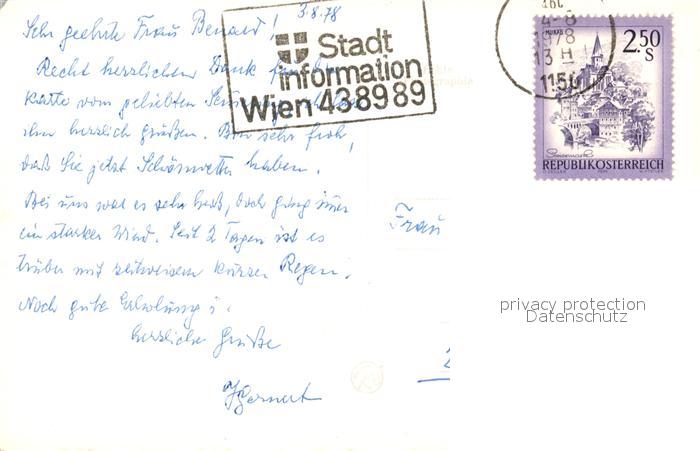 3.8.78
Sehr geehrte Frau Benard!
Recht herzlichen Dank für
Karte vom geliebten
ihn herzlich grüßen. Bin sehr froh,
daß Sie jetzt Schönwetter haben.
Bei uns war es sehr heiß, doch ging immer
ein starker Wind. Seit 2 Tagen ist es
trüber mit zeitweisem kurzen Regen.
Noch gute Erholung u.
herzliche Grüße
Stadt
information
Wien 43 89 89
1978
13 H
1150
2.50
S
REPUBLIK ÖSTERREICH
Frau
privacy protection
Datenschutz